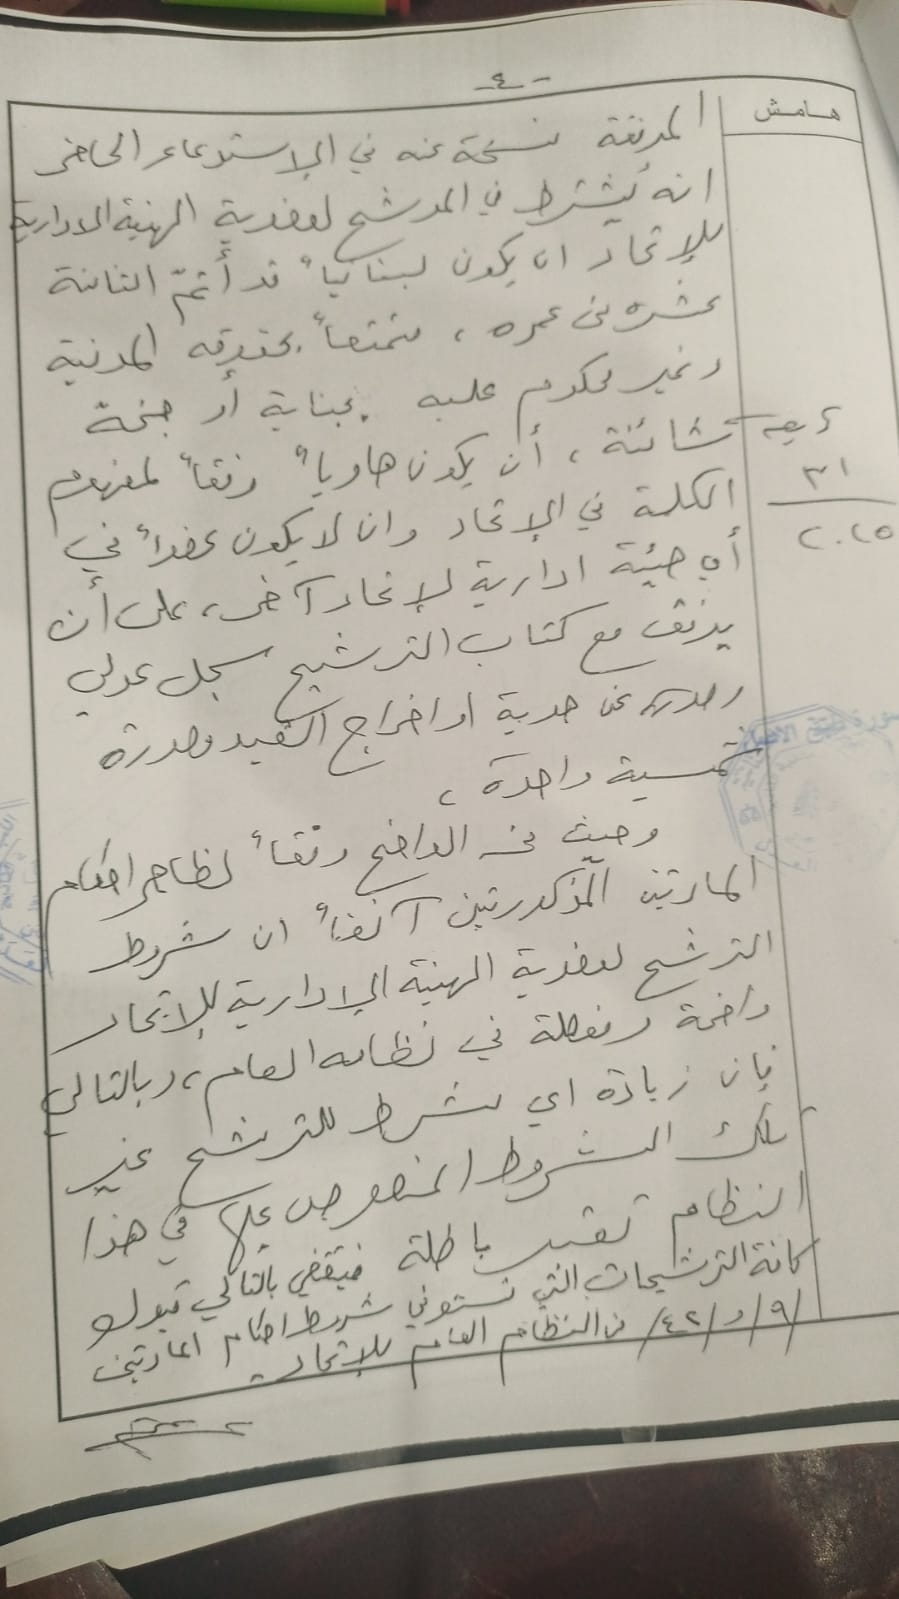 - ٤ -
هامش
المرفقة نسخة عنه في الإستدعاء الحاضر
انه يُشترط في المرشح لعضوية الهيئة الادارية
للإتحاد ان يكون لبنانياً قد أتمّ الثامنة
عشرة من عمره ، متمتعاً بحقوقه المدنية
وغير محكوم عليه بجناية أو جنحة
شائنة ، أن يكون هاوياً وفقاً لمفهوم
الكلمة في الإتحاد وان لا يكون عضواً في
أي هيئة ادارية لإتحاد آخر ، على أن
يرفق مع كتاب الترشيح سجل عدلي
وصورة عن هوية او اخراج القيد وصورة
شمسية واحدة ،
وحيث من الواضح وفقاً لظاهر احكام
المادتين المذكورتين آنفاً ان شروط
الترشح لعضوية الهيئة الإدارية للإتحاد
واضحة ومفصلة في نظامه العام ، وبالتالي
فإن زيادة اي شرط للترشح غير
تلك الشروط المنصوص عليها في هذا
النظام تعتبر باطلة فيقتضي بالتالي قبول
كافة الترشيحات التي تستوفي شروط احكام المادتين
/٩/ و /٤٢/ من النظام العام للإتحاد -
٣١
٢٠٢٥